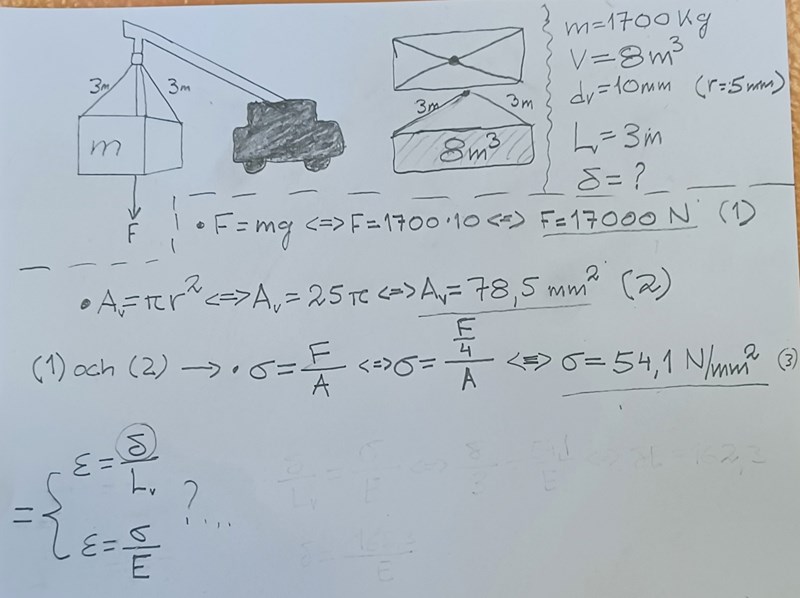 3m 3m
m
F
3m 3m
8m³
m=1700Kg
V=8m³
dᵥ=10mm (r=5mm)
Lᵥ=3m
δ=?
• F=mg <=> F=1700·10 <=> F=17000 N (1)
• Aᵥ=πr² <=> Aᵥ=25π <=> Aᵥ=78,5 mm² (2)
(1) och (2) → • σ=F/A <=> σ=(F/4)/A <=> σ=54,1 N/mm² (3)
= { ε=δ/Lᵥ
ε=σ/E ?....